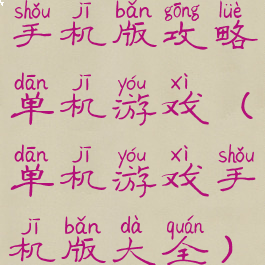 shǒu jī bǎn gōng lüè
手机版攻略
dān jī yóu xì
单机游戏（
dān jī yóu xì shǒu
单机游戏手
jī bǎn dà quán
机版大全）